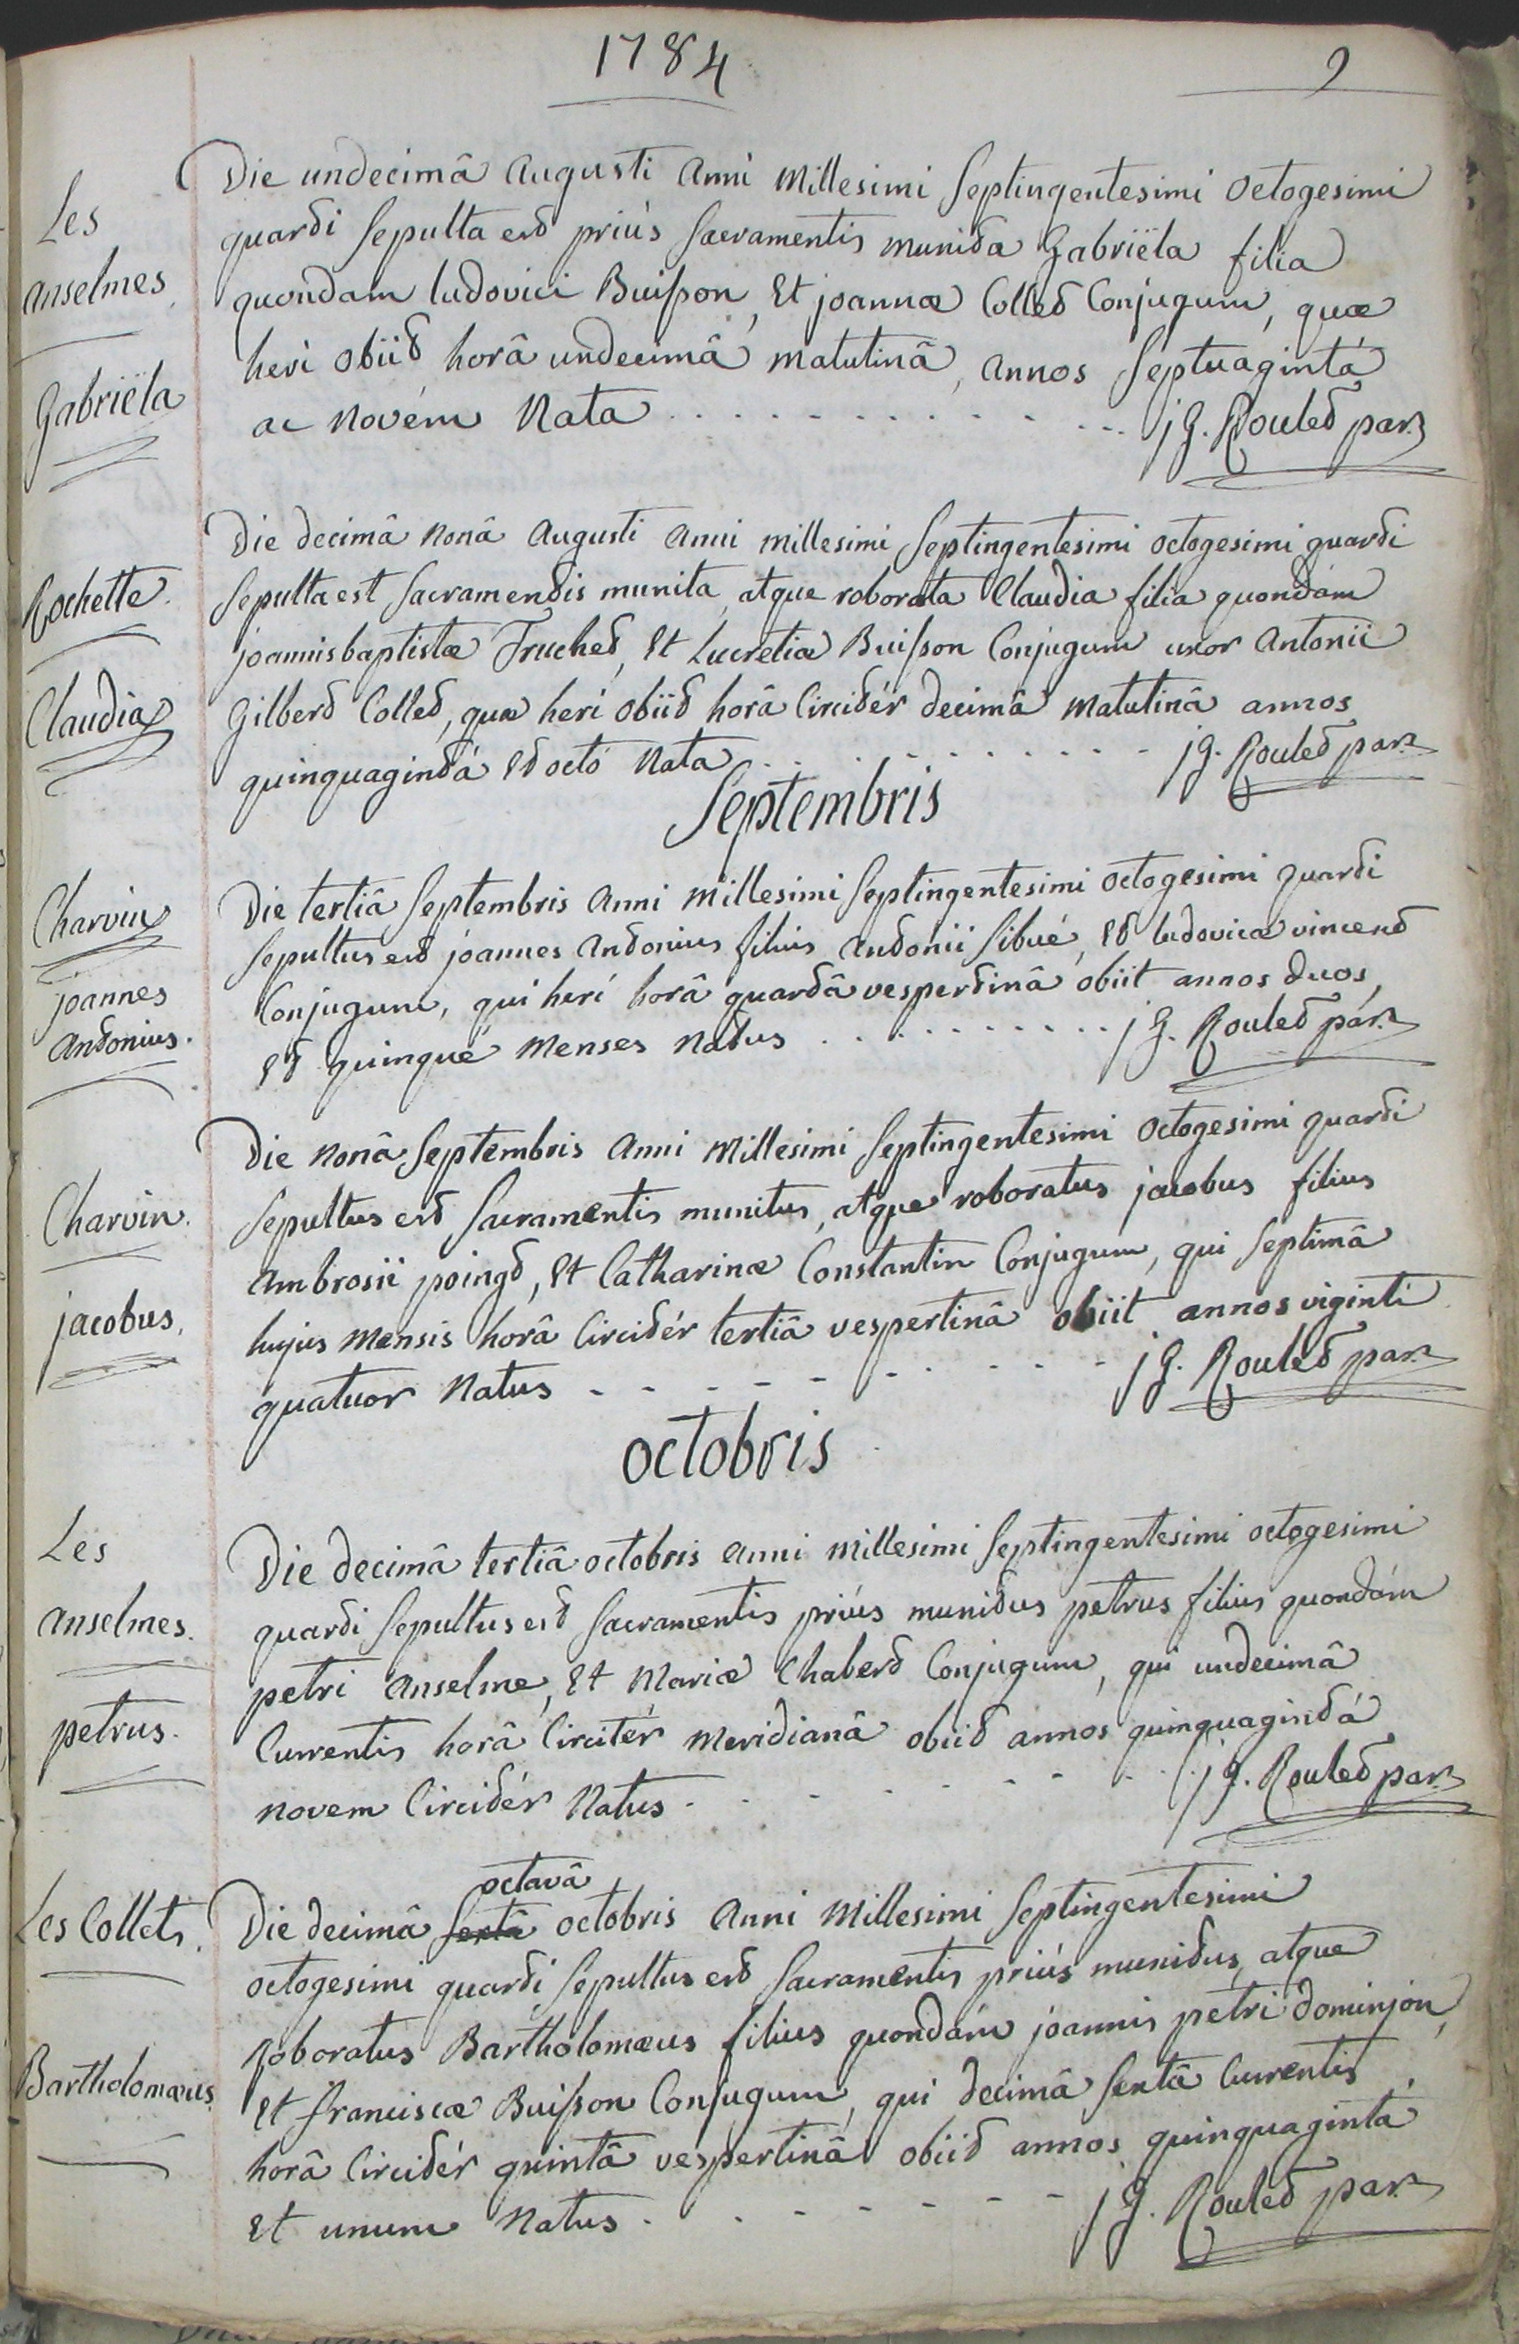 1784
9
Les
anselmes
Gabriëla
Die undecimâ Augusti Anni Millesimi Septingentesimi octogesimi
quarti Sepulta est priùs Sacramentis munita Gabriëla filia
quondam ludovici Buisson, Et joannæ Collet Conjugum, quæ
heri obiit horâ undecimâ matutinâ, annos Septuagintá
ac novém Nata - - - - - - - - - - j G. Roulet par.
Rochette.
Claudia
Die decimâ nonâ Augusti Anni millesimi Septingentesimi octogesimi quarti
Sepulta est Sacramentis munita, atque roborata Claudia filia quondám
joannis baptistæ Truchet, Et Lucretiæ Buisson Conjugum uxor Antonii
Gilbert Collet, quæ heri obiit horâ Circitér decimâ matutinâ annos
quinquagintá Et octo Nata - - - - - - - - j G. Roulet par.
Septembris
Charvin
joannes
Antonius.
Die tertiâ Septembris Anni Millesimi Septingentesimi octogesimi quarti
Sepultus est joannes Antonius filius Antonii Sibué, Et ludovicæ vincent
Conjugum, qui heri horâ quartâ vespertinâ obiit annos duos,
Et quinqué Menses Natus - - - - - - - - j G. Roulet par.
Charvin.
jacobus.
Die nonâ Septembris Anni Millesimi Septingentesimi Octogesimi quarti
Sepultus est Sacramentis munitus, atque roboratus jacobus filius
Ambrosii poingt, Et Catharinæ Constantin Conjugum, qui Septimâ
hujus Mensis horâ Circitér tertiâ vespertinâ obiit annos viginti
quatuor Natus - - - - - - - - - j G. Roulet par.
octobris
Les
Anselmes.
petrus.
Die decimâ tertiâ octobris Anni Millesimi Septingentesimi octogesimi
quarti Sepultus est Sacramentis priùs munitus petrus filius quondám
petri Anselme, Et Mariæ Chabert Conjugum, qui undecimâ
Currentis horâ Circitér Meridianâ obiit annos quinquagintá
novem Circitér Natus - - - - - - - - j G. Roulet par.
Les Collets.
Bartholomæus
octavâ
Die decimâ sextâ octobris Anni Millesimi Septingentesimi
octogesimi quarti Sepultus est Sacramentis priùs munitus, atque
Roboratus Bartholomæus filius quondám joannis petri dominjon,
Et franciscæ Buisson Conjugum, qui decimâ Sextâ Currentis
horâ Circitér quintâ vespertinâ obiit annos quinquagintá
Et unum Natus - - - - - - - j G. Roulet par.